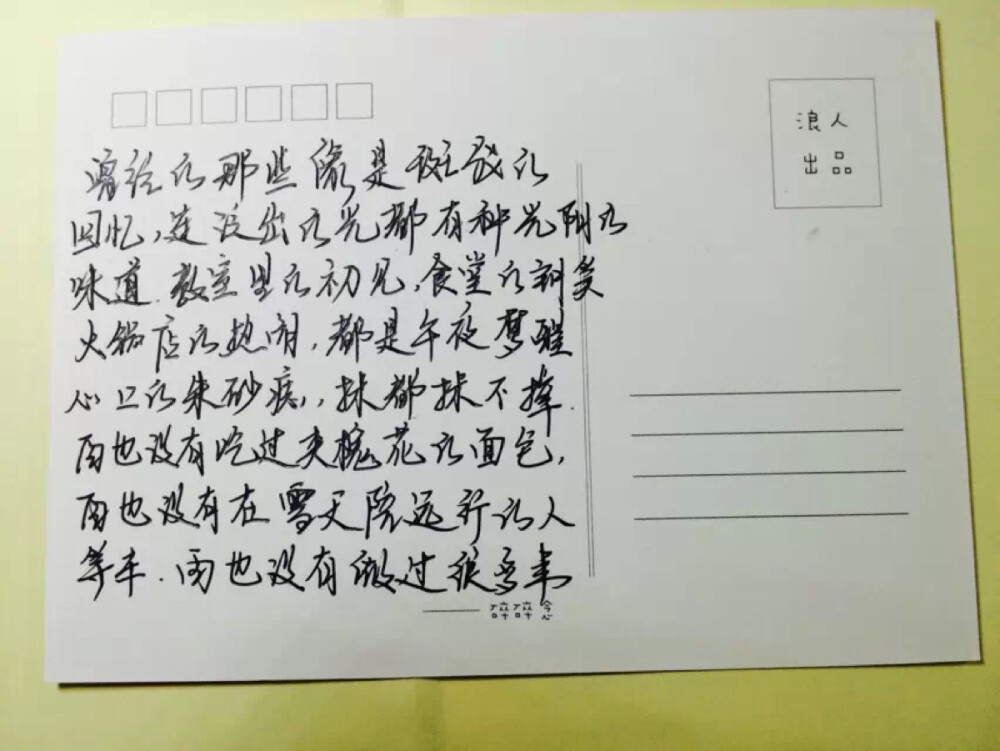 浪人
出品
的那些像是的
回忆,连泛出的光都有种光阴的
味道.教室里的初见,食堂的笑
火锅店的热闹,都是午夜梦醒
心上的朱砂痣,,抹都抹不掉.
再也没有吃过夹槐花的面包,
再也没有在雪天陪远行的人
等车.再也没有做过很多事
——碎碎念